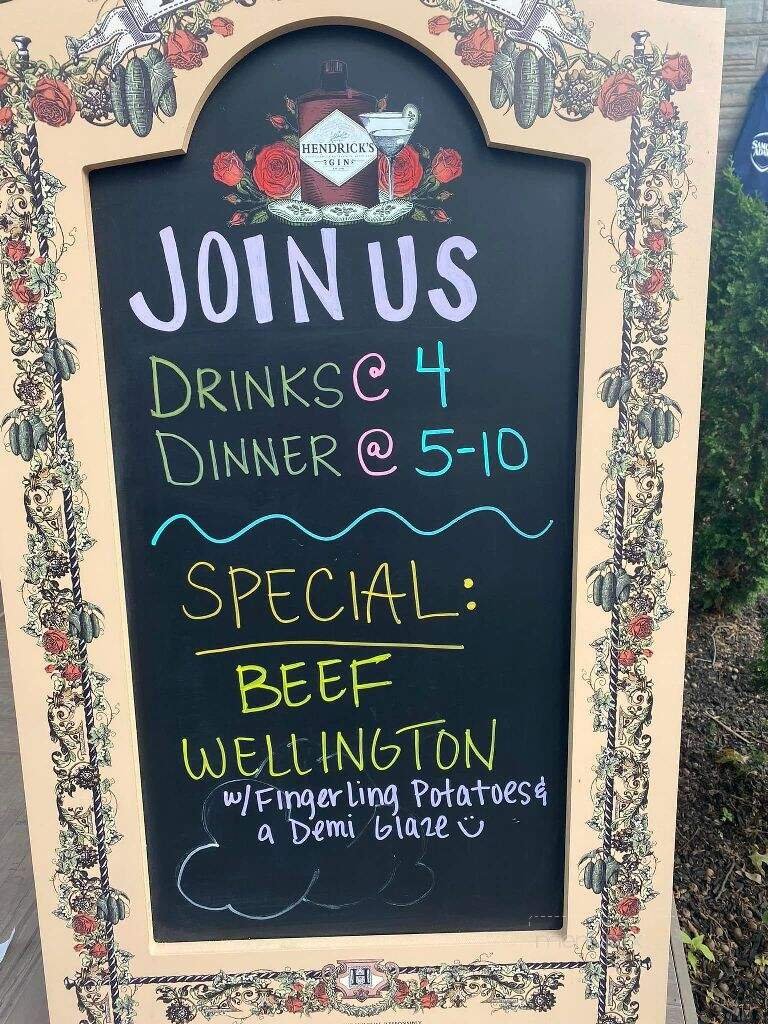 HENDRICK'S
GIN
JOIN US
DRINKS @ 4
DINNER @ 5-10
SPECIAL:
BEEF
WELLINGTON
w/Fingerling Potatoes &
a Demi Glaze
H